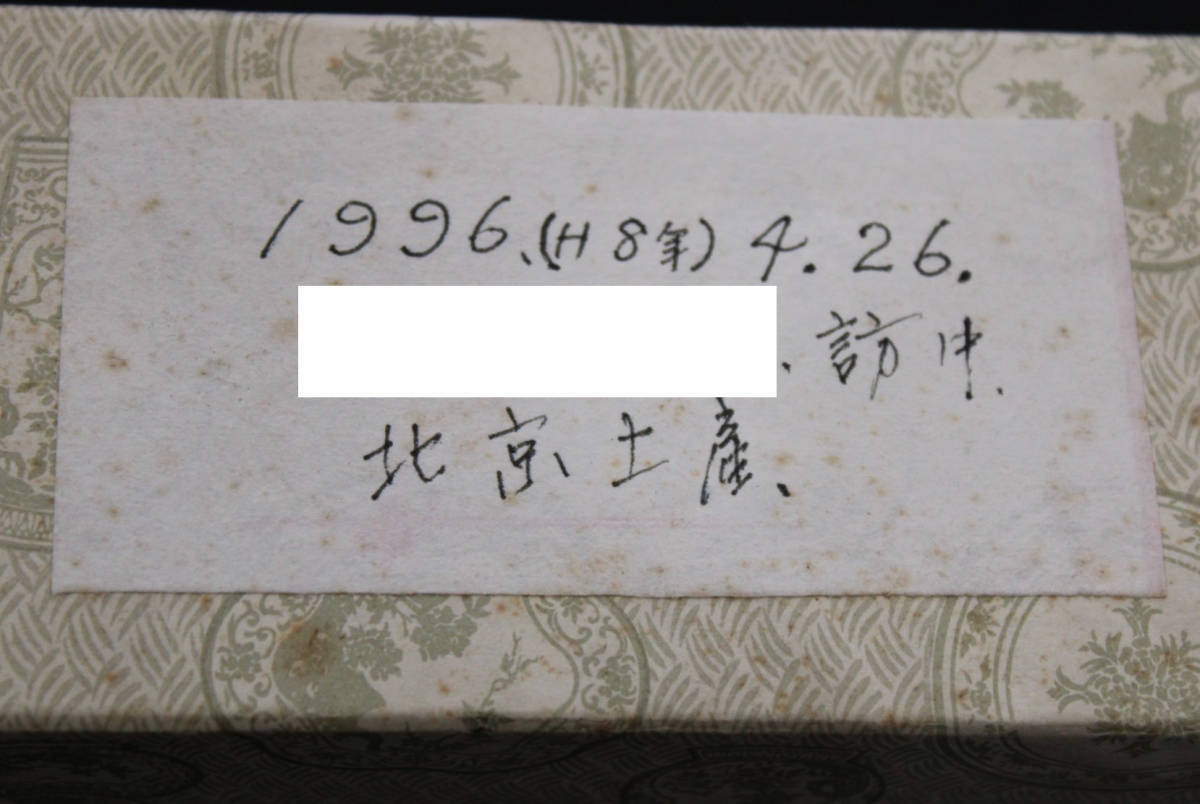 1996.(H8年)4.26.
.訪中.
北京土産.